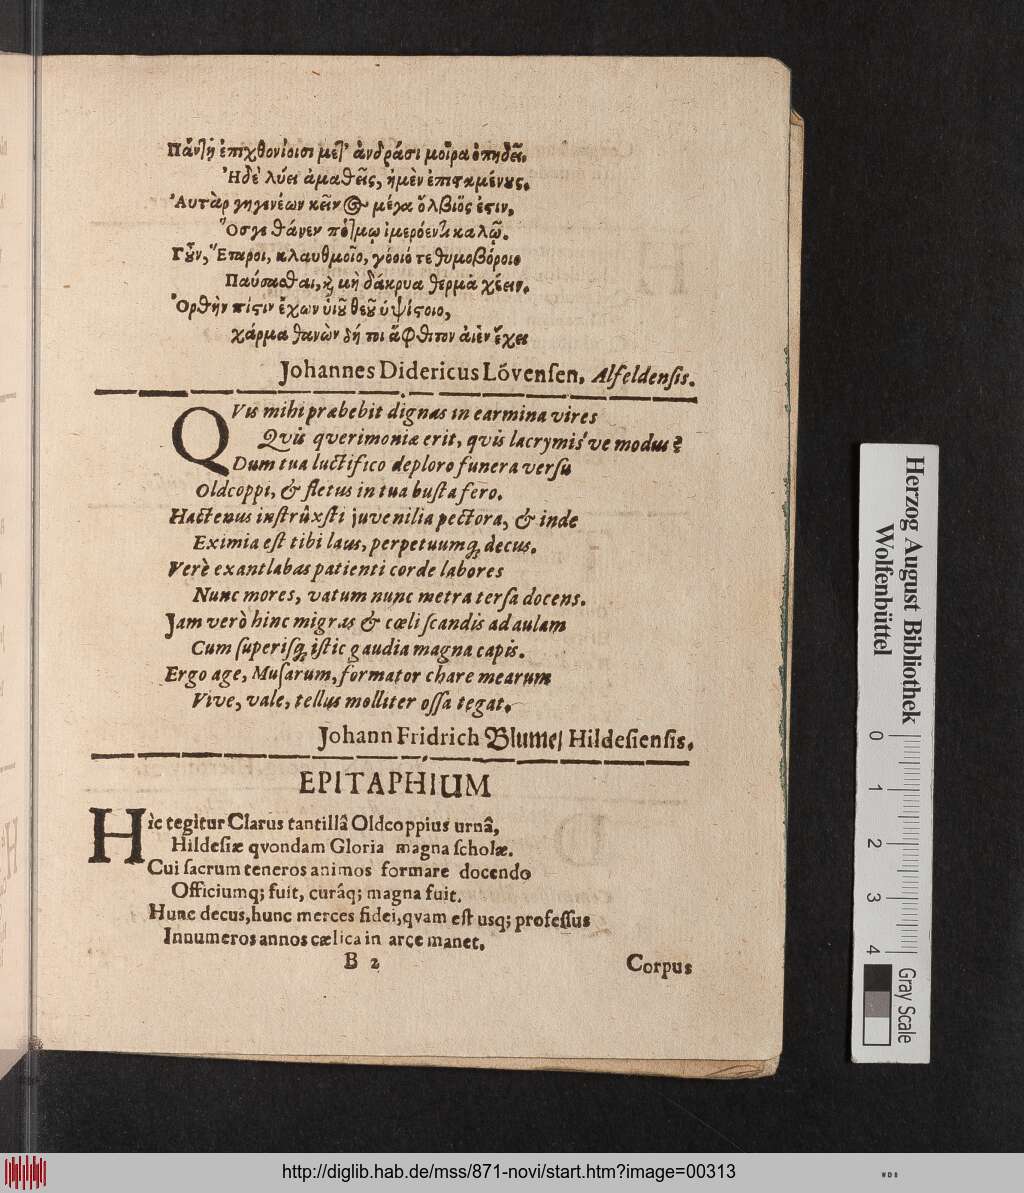 Πάντη ἐπιχθονίοισι μετ' ἀνδράσι μοῖρα ὀπηδεῖ,
Ἠδὲ λύει ἀμαθεῖς, ἠμὲν ἐπισταμένους.
Αὐτὰρ γηγενέων κεῖνος μέγα ὄλβιός ἐστιν,
Ὅσγε θάνεν πότμῳ ἱμερόεντι καλῷ.
Γοῦν, Ἕταροι, κλαυθμοῖο, γόοιό τε θυμοβόροιο
Παύσασθαι, καὶ μὴ δάκρυα θερμὰ χέειν.
Ὀρθὴν πίστιν ἔχων υἱοῦ θεοῦ ὑψίστοιο,
χάρμα θανὼν δή τοι ἄφθιτον αἰὲν ἔχει
Johannes Didericus Lóvensen, Alfeldensis.
QVis mihi præbebit dignas in earmina vires
Qvis qverimoniæ erit, qvis lacrymis've modus?
Dum tua luctifico deploro funera versu
Oldcoppi, & fletus in tua busta fero.
Hactenus instrûxsti juvenilia pectora, & inde
Eximia est tibi laus, perpetuumq; decus.
Verè exantlabas patienti corde labores
Nunc mores, vatum nunc metra tersa docens.
Jam verò hinc migras & cœli scandis ad aulam
Cum superisq; istic gaudia magna capis.
Ergo age, Musarum, formator chare mearum
Vive, vale, tellus molliter ossa tegat.
Johann Fridrich Blume/ Hildesiensis.
EPITAPHIUM
Hîc tegitur Clarus tantillâ Oldcoppius urnâ,
Hildesiæ qvondam Gloria magna scholæ.
Cui sacrum teneros animos formare docendo
Officiumq; fuit, curâq; magna fuit.
Hunc decus, hunc merces fidei, qvam est usq; professus
Innumeros annos cælica in arce manet.
B 2 Corpus
Herzog August Bibliothek
Wolfenbüttel
0 1 2 3 4
Gray Scale
http://diglib.hab.de/mss/871-novi/start.htm?image=00313